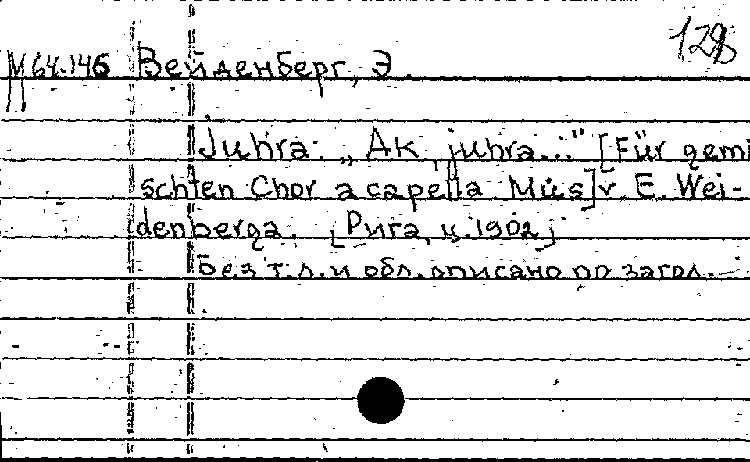 128
М64.146 Вейденберг, Э.
Juhra. „Ak, juhra..." [Für gemi
schten Chor a capella Mus] v E. Wei-
denberga. [Рига, ц. 1902]
Без т.л. и обл. описано по загол.